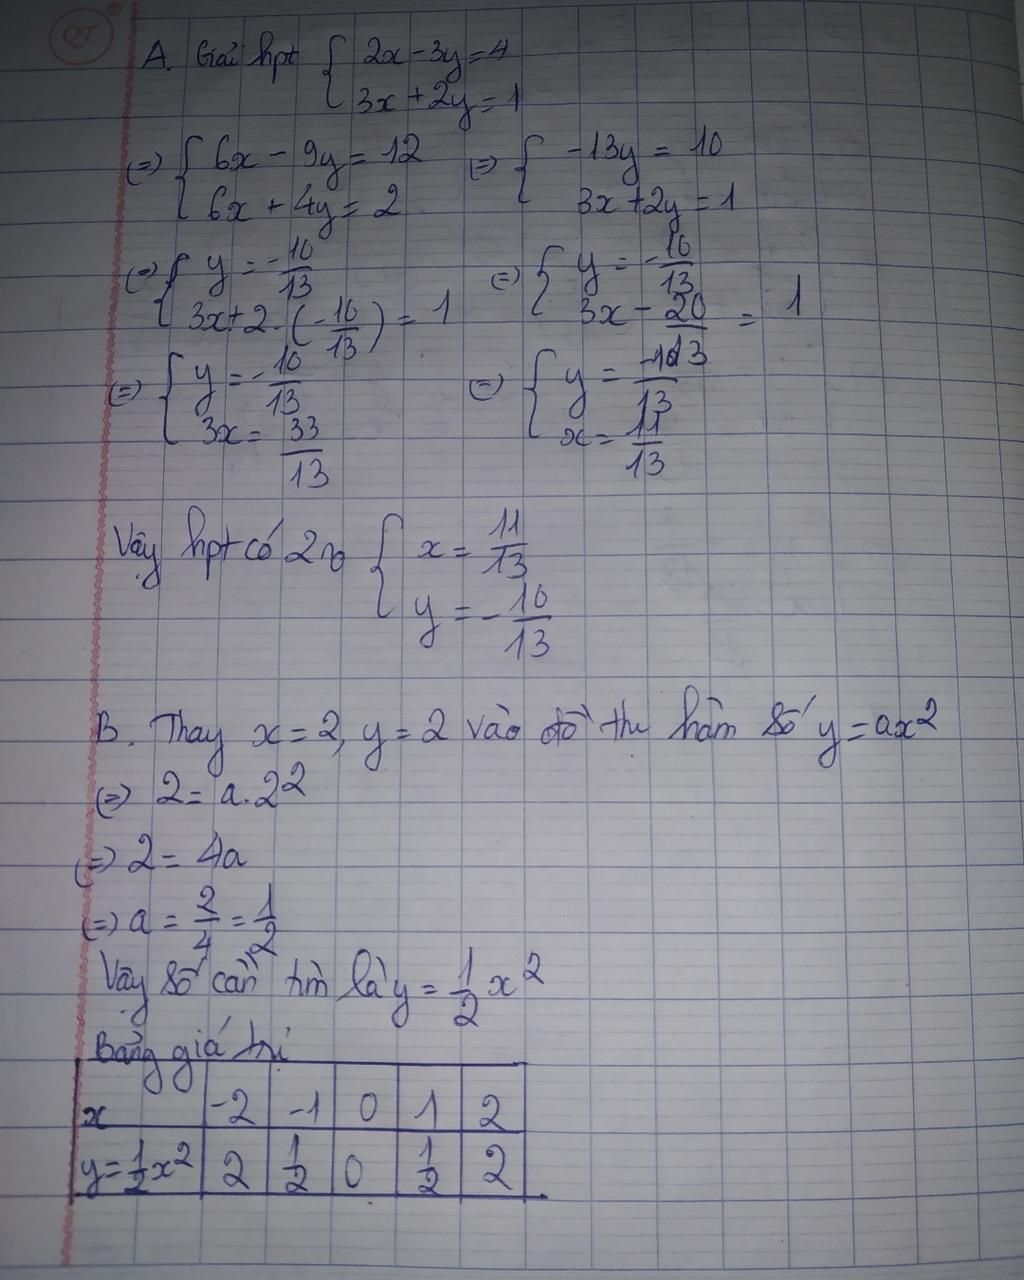 QT
A. Giải hpt { 2x - 3y = 4
3x + 2y = 1
(=) { 6x - 9y = 12 (=) { -13y = 10
6x + 4y = 2 3x + 2y = 1
(=) { y = -10/13 (=) { y = -10/13
3x + 2. (-10/13) = 1 3x - 20/13 = 1
(=) { y = -10/13 (=) { y = -10/13
3x = 33/13 x = 11/13
Vậy hpt có 2 no { x = 11/13
y = -10/13
B. Thay x = 2, y = 2 vào đồ thị hàm số y = ax²
(=) 2 = a.2²
(=) 2 = 4a
(=) a = 2/4 = 1/2
Vậy số cần tìm là y = 1/2 x²
Bảng giá trị
x -2 -1 0 1 2
y = 1/2 x² 2 1/2 0 1/2 2